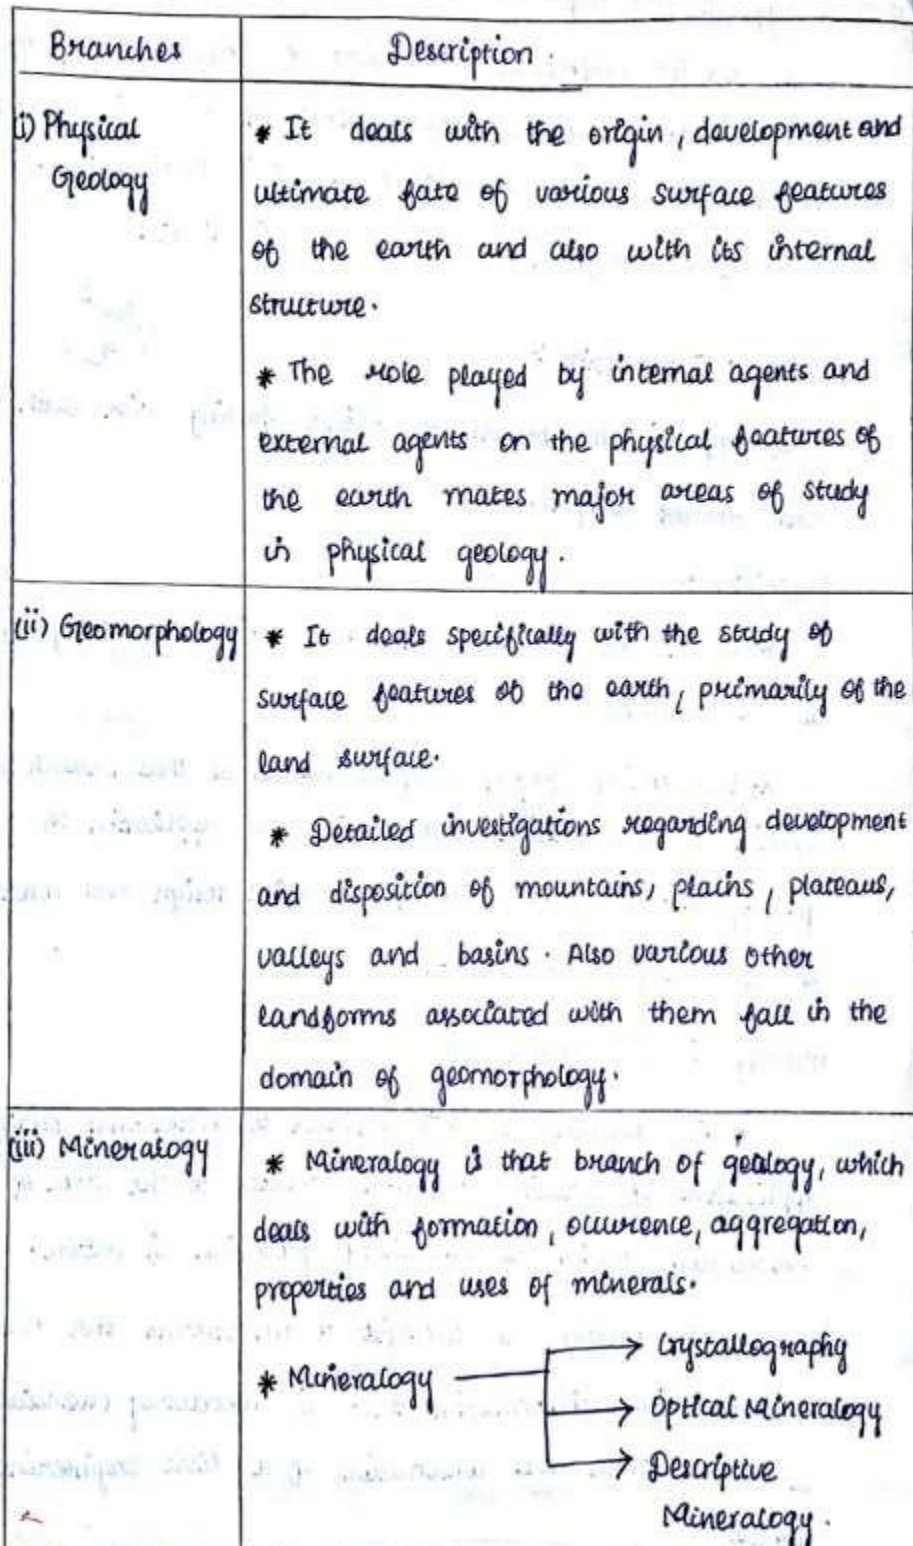 Branches Description.
(i) Physical
Geology
* It deals with the origin, development and
ultimate fate of various surface features
of the earth and also with its internal
structure.
* The role played by internal agents and
external agents on the physical features of
the earth makes major areas of study
in physical geology.
(ii) Geomorphology
* It deals specifically with the study of
surface features of the earth, primarily of the
land surface.
* Detailed investigations regarding development
and disposition of mountains, plains, plateaus,
valleys and basins. Also various other
landforms associated with them fall in the
domain of geomorphology.
(iii) Mineralogy
* Mineralogy is that branch of geology, which
deals with formation, occurence, aggregation,
properties and uses of minerals.
* Mineralogy → Crystallography
→ Optical Mineralogy
→ Descriptive
Mineralogy.